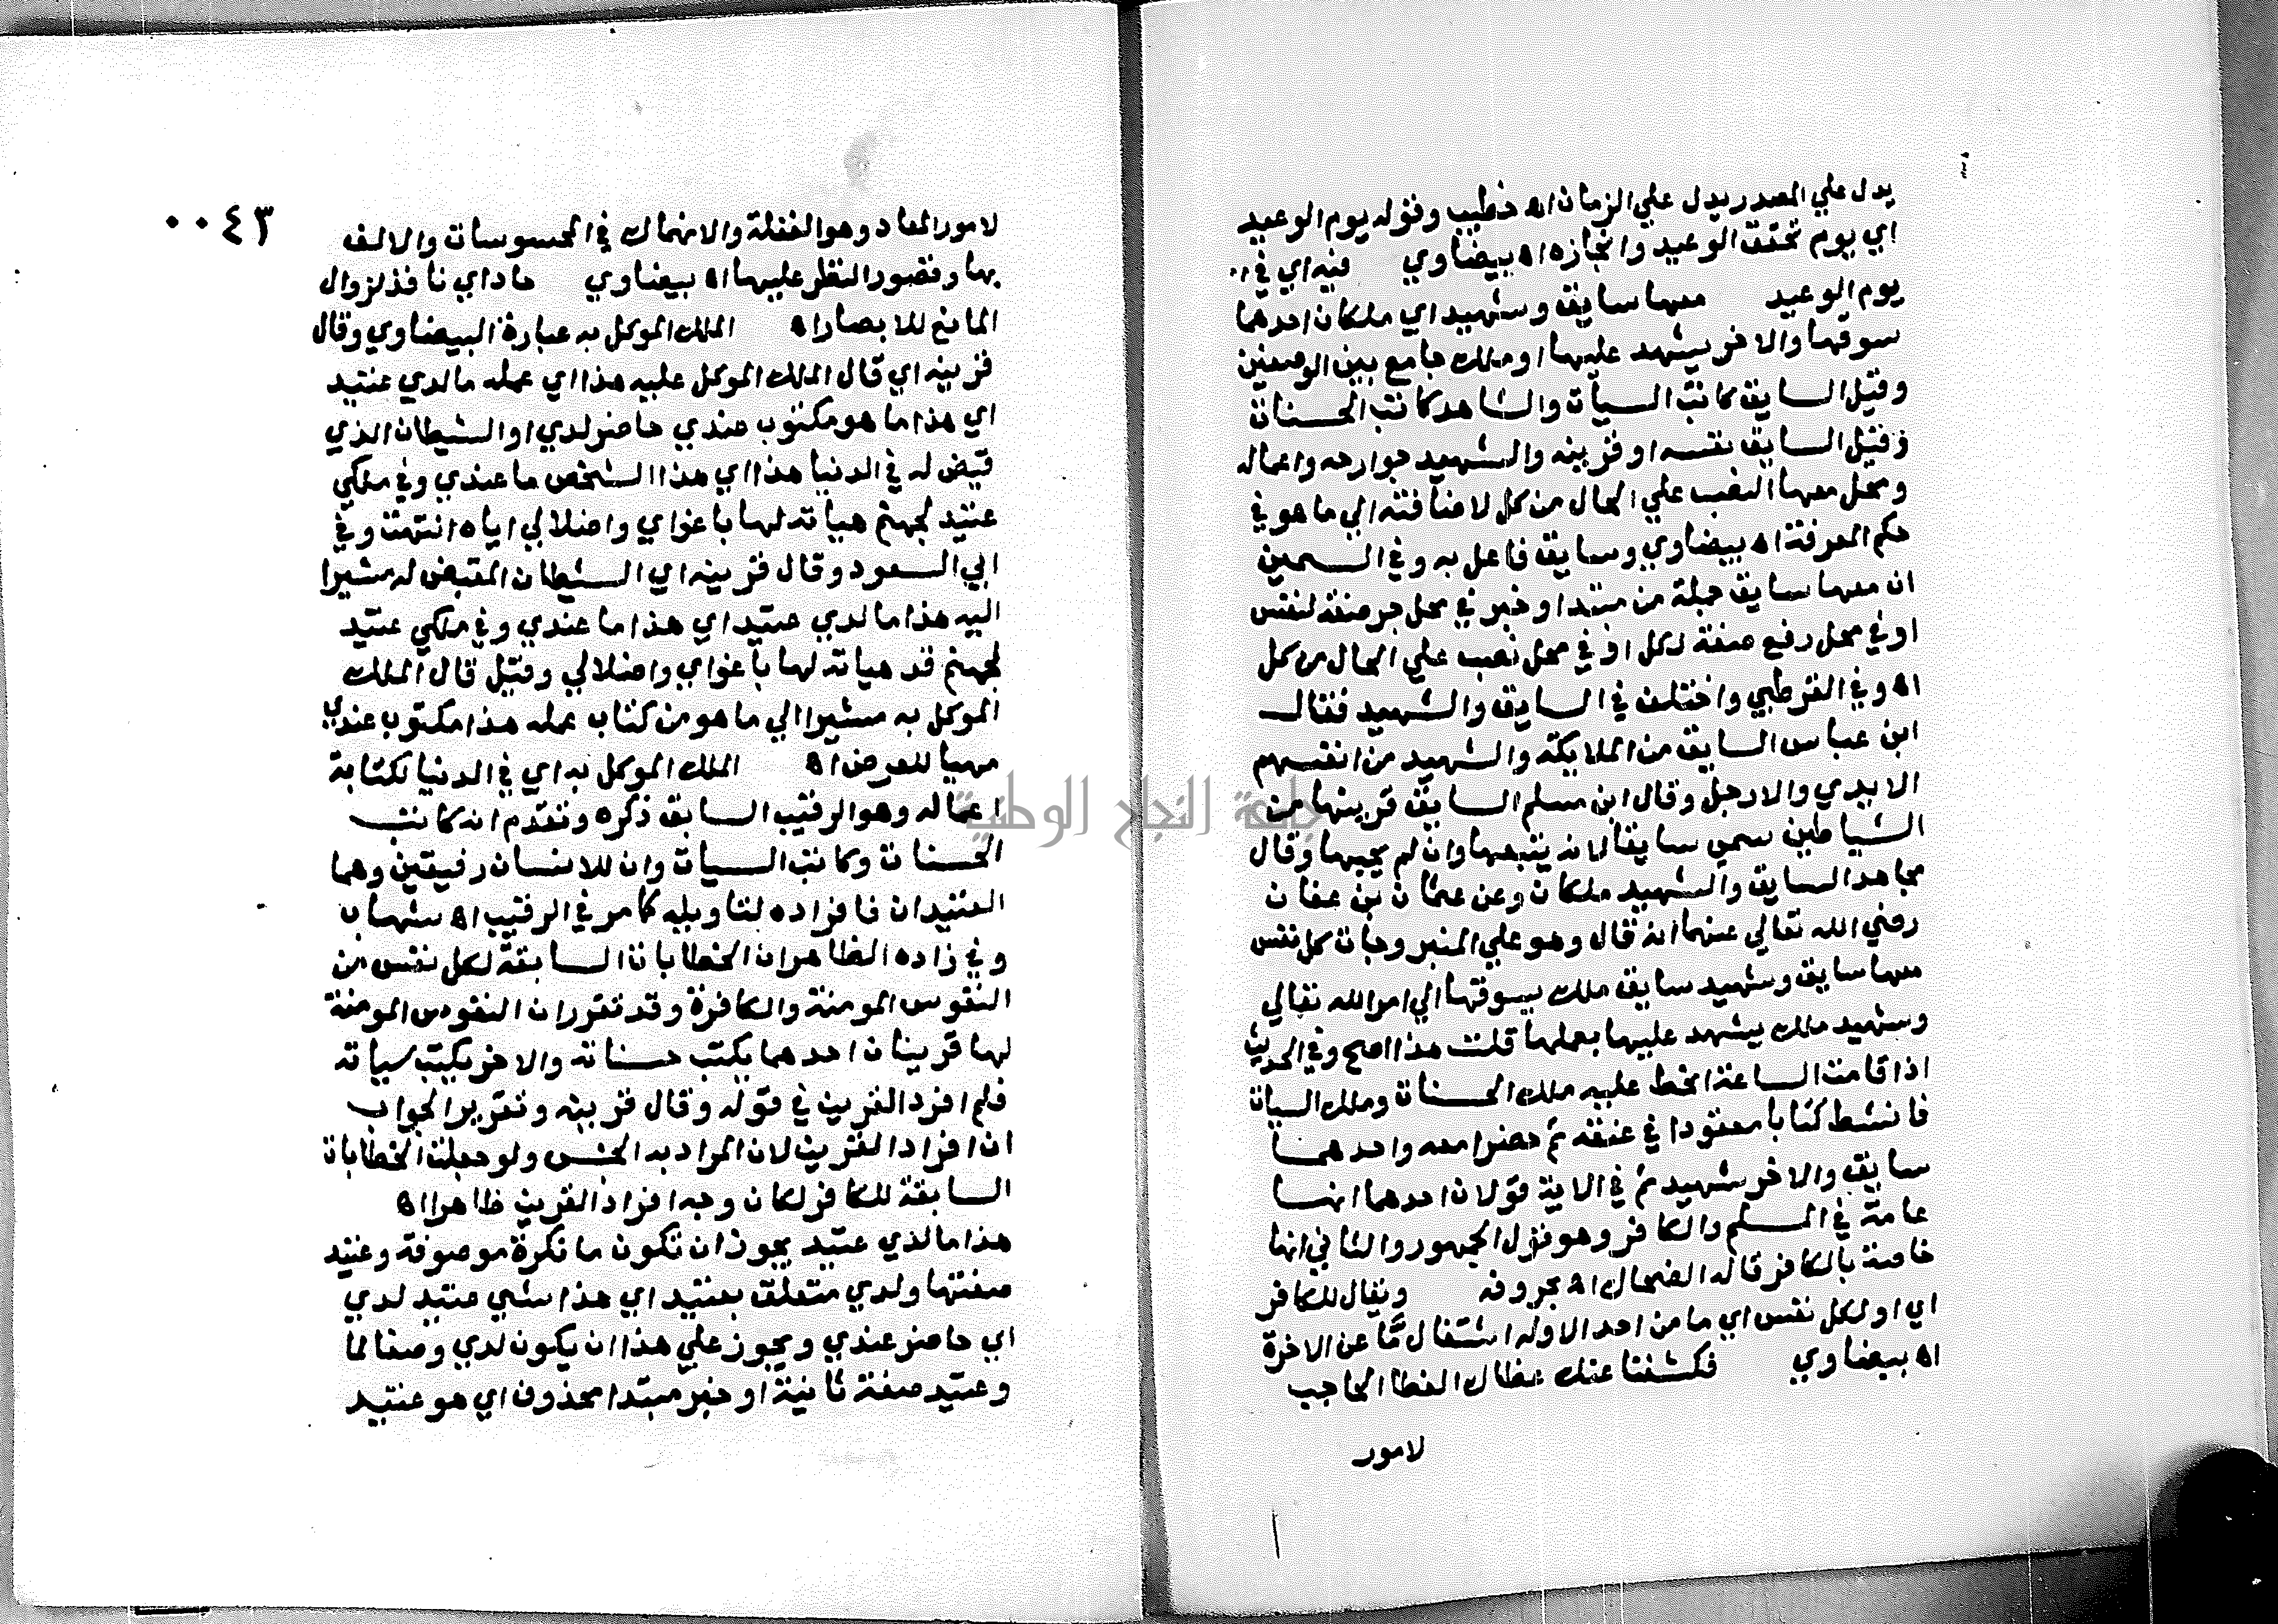 يدل علي المصدر يدل علي الزمان اه خطيب وقوله يوم الوعيد
اي يوم تحقق الوعيد وانجازه اه بيضاوي فيه اي في
يوم الوعيد معها سايق وشهيد اي ملكان احدهما
سوقها والاخر يشهد عليها او ملك جامع بين الوصفين
وقيل السايق كاتب السيأت والشاهد كاتب الحسنات
وقيل السايق نفسه او قرينه والشهيد جوارحه واعماله
ومحل معها النصب علي الحال من كل لاضافته الي ما هو في
حكم المعرفة اه بيضاوي وسايق فاعل به وفي السمين
ان معها سايق جملة من مبتدا وخبر في محل جر صفة لنفس
او في محل رفع صفة لكل او في محل نصب علي الحال من كل
اه وفي القرطبي واختلف في السايق والشهيد فقال
ابن عباس السايق من الملايكة والشهيد من انفسهم
الايدي والارجل وقال ابن مسلم السايق قرينها من
الشياطين سمي سايقا لانه يتبعها وان لم يحثها وقال
مجاهد السايق والشهيد ملكان وعن عثمان بن عفان
رضي الله تعالي عنهما انه قال وهو علي المنبر وجات كل نفس
معها سايق وشهيد سايق ملك يسوقها الي امر الله تعالي
وشهيد ملك يشهد عليها بعملها قلت هذا اصح وفي الحديث
اذا قامت الساعة انحط عليه ملك الحسنات وملك السيات
فانشط كتابا معقودا في عنقه ثم حضرا معه واحدهما
سايق والاخر شهيد ثم في الاية قولان احدهما انها
عامة في المسلم والكافر وهو قول الجمهور والثاني انها
خاصة بالكافر قاله الضحاك اه بحروفه ويقال للكافر
اي او لكل نفس اي ما من احد الا وله اشتغال مّا عن الاخرة
اه بيضاوي فكشفنا عنك غطاك الغطا الحاجب
لامور
٠٠٤٣
لامور المعاد وهو الغفلة والانهماك في المحسوسات والالف
بها وقصور النظر عليها اه بيضاوي حاد اي نافذ لزوال
المانع للابصار اه الملك الموكل به عبارة البيضاوي وقال
قرينه اي قال الملك الموكل عليه هذا اي عمله ما لدي عتيد
اي هذا ما هو مكتوب عندي حاضر لدي او الشيطان الذي
قيض له في الدنيا هذا اي هذا الشخص ما عندي وفي ملكي
عتيد لجهنم هيأته لها باغواي واضلالي اياه انتهت وفي
ابي السعود وقال قرينه اي الشيطان المقيض له مشيرا
اليه هذا ما لدي عتيد اي هذا ما عندي وفي ملكي عتيد
لجهنم قد هياته لها باغواي واضلالي وقيل قال الملك
الموكل به مشيرا الي ما هو من كتاب عمله هذا مكتوب عندي
مهيا للعرض اه الملك الموكل به اي في الدنيا لكتابة
اعماله وهو الرقيب السابق ذكره وتقدم انه كاتب
الحسنات وكاتب السيات وان للانسان رقيبين وهما
العتيدان فافراده لتاويله كما مر في الرقيب اه شهاب
وفي زاده الظاهر ان الخطابات السابقة لكل نفس من
النفوس المومنة والكافرة وقد تقرر ان النفوس المومنة
لها قرينان احدهما يكتب حسناته والاخر يكتب سياته
فلم افرد القرين في قوله وقال قرينه وتقرير الجواب
ان افراد القرين لان المراد به الجنس ولو جعلت الخطابات
السابقة للكافر لكان وجه افراد القرين ظاهرا اه
هذا ما لدي عتيد يجوز ان تكون ما نكرة موصوفة وعتيد
صفتها ولدي متعلق بعتيد اي هذا شي عتيد لدي
اي حاضر عندي ويجوز علي هذا ان يكون لدي وصفا لما
وعتيد صفة ثانية او خبر مبتدا محذوف اي هو عتيد
جامعة النجاح الوطنية